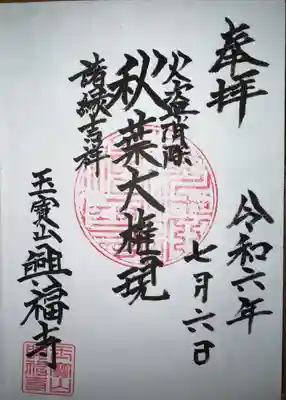 奉拝
令和六年
七月六日
火盗消除
秋葉大権現
諸縁吉祥
玉寶山興福寺